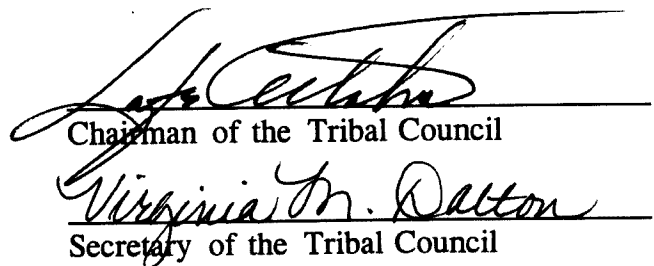 Chairman of the Tribal Council
Virginia M. Dalton
Secretary of the Tribal Council